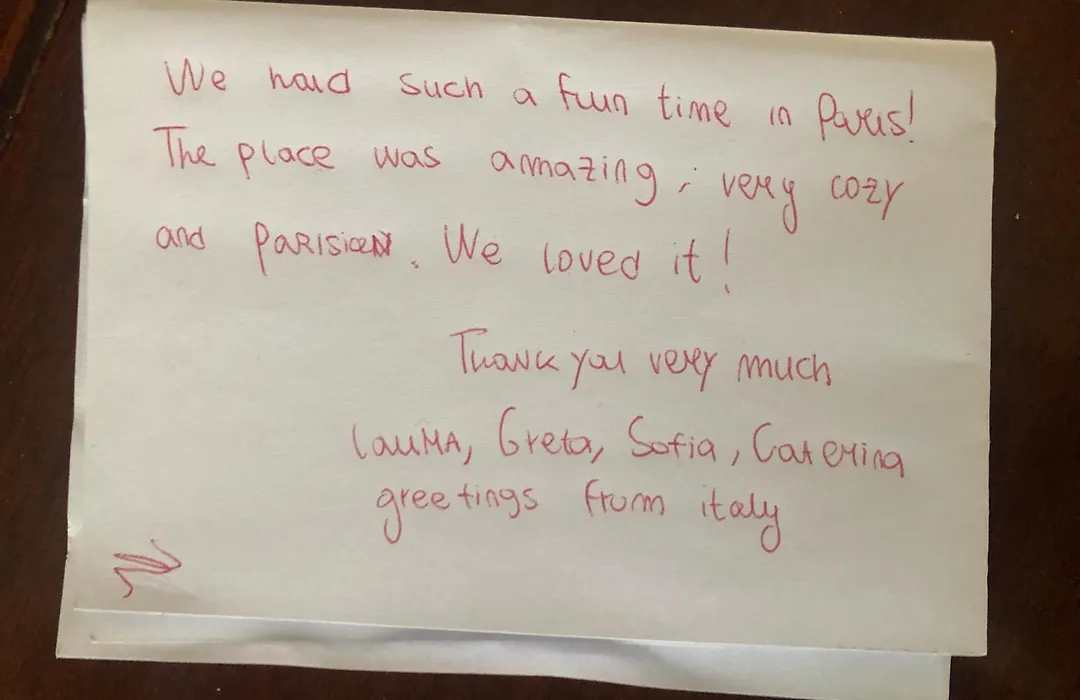 We had such a fun time in Paris!
The place was amazing, very cozy
and PARISIEN. We loved it!
Thank you very much
Laura, Greta, Sofia, Caterina
greetings from italy